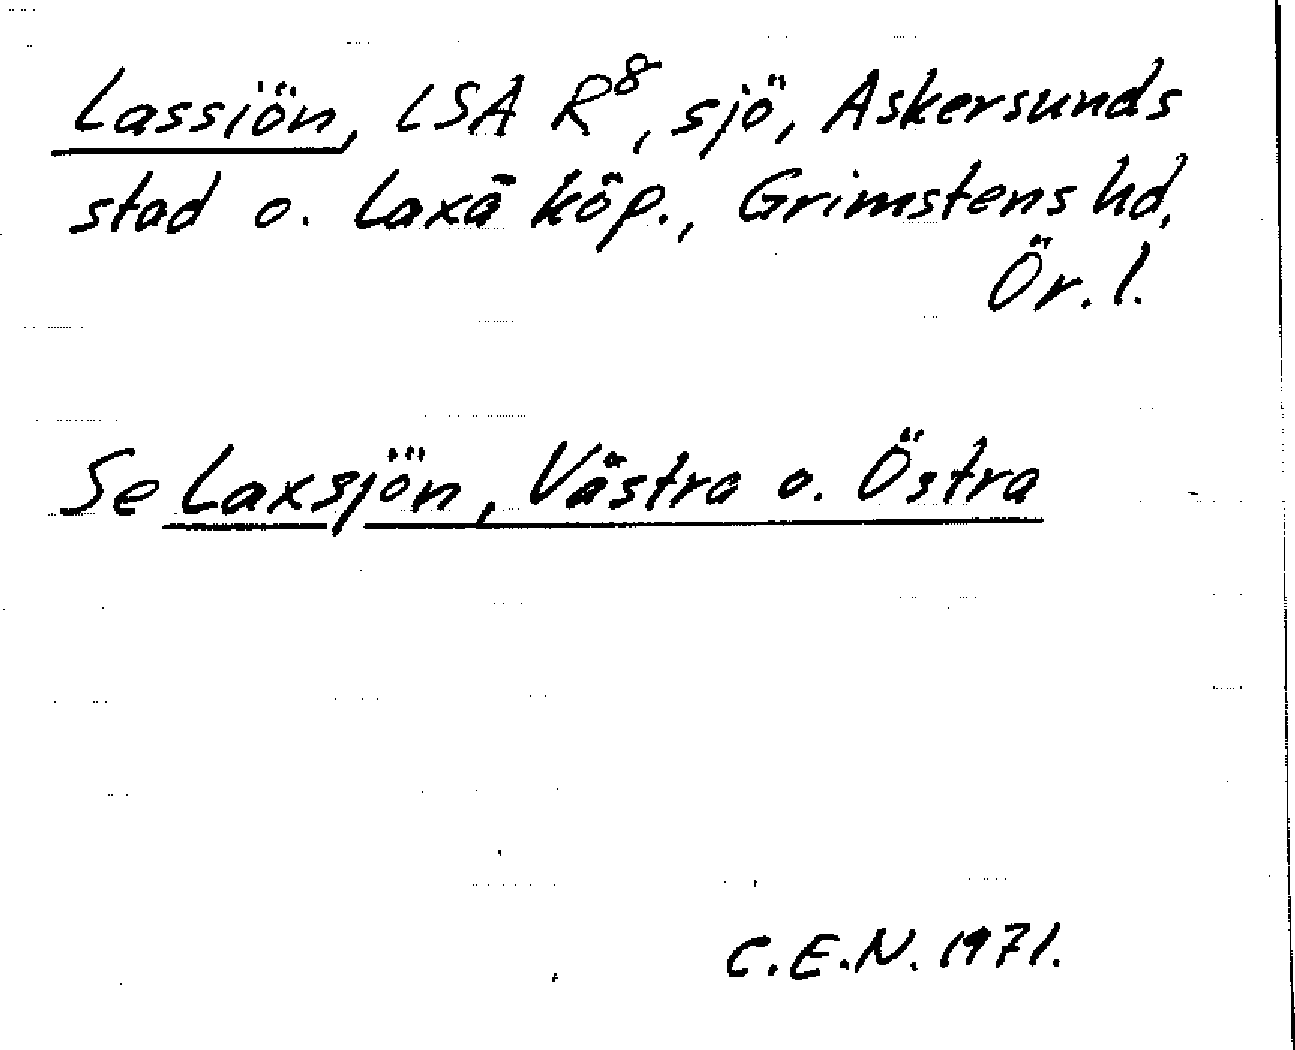 Lassiön, LSA R⁸, sjö, Askersunds
stad o. Laxå köp., Grimstens hd,
Ör. l.
Se Laxsjön, Västra o. Östra
C.E.N. 1971.